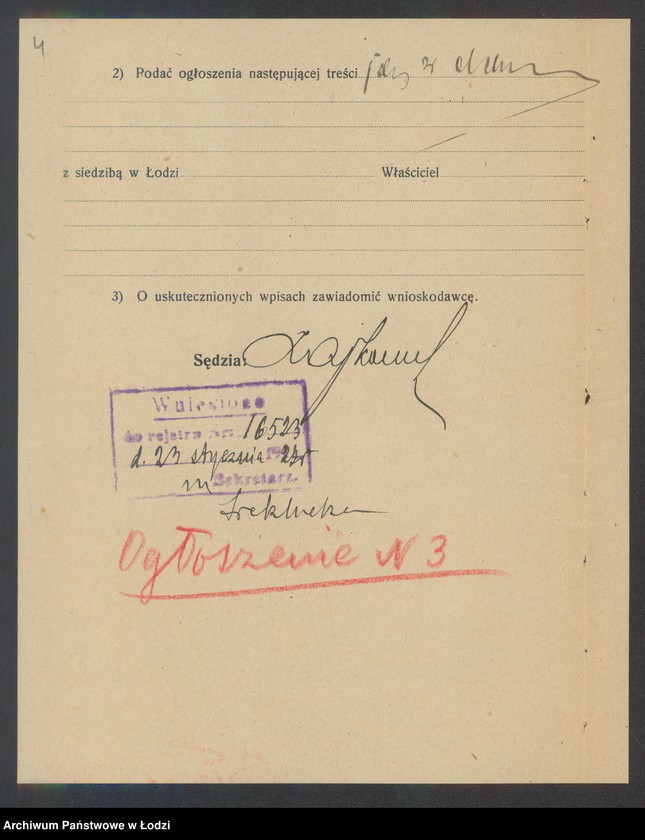 4
2) Podać ogłoszenia następującej treści
z siedzibą w Łodzi Właściciel
3) O uskutecznionych wpisach zawiadomić wnioskodawcę.
Sędzia:
Wniesione
do rejstru 16523
d. 23 stycznia
Sekretarz.
Ogłoszenie N 3
Archiwum Państwowe w Łodzi